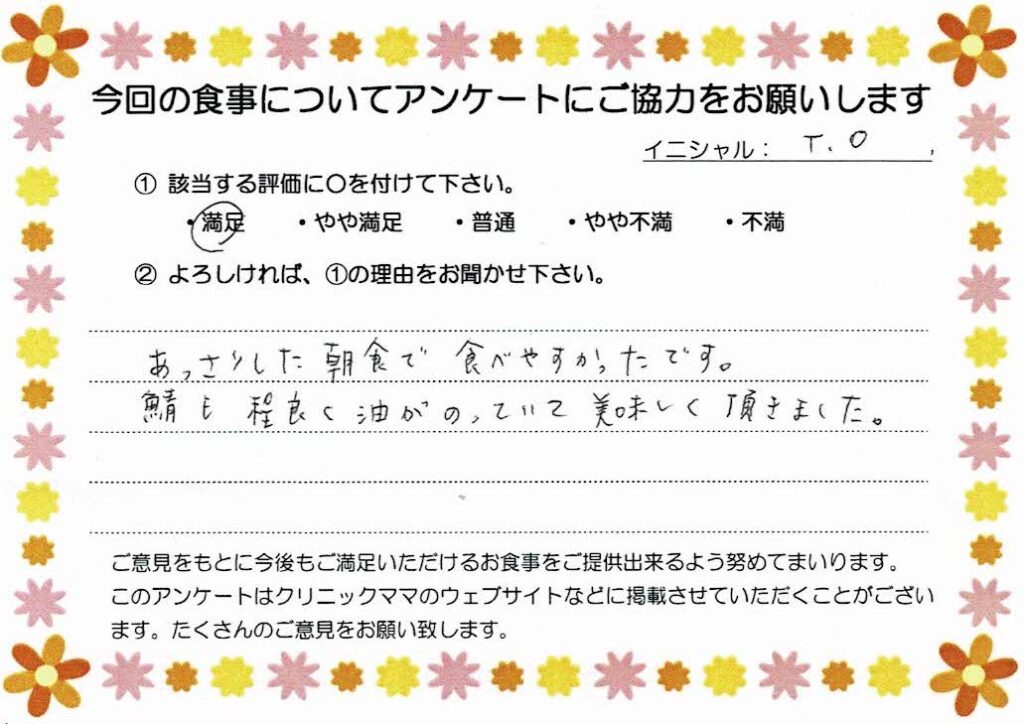 今回の食事についてアンケートにご協力をお願いします
イニシャル： T.O
① 該当する評価に〇を付けて下さい。
・満足 ・やや満足 ・普通 ・やや不満 ・不満
② よろしければ、①の理由をお聞かせ下さい。
あっさりした朝食で 食べやすかったです。
鯖も程良く油がのっていて美味しく頂きました。
ご意見をもとに今後もご満足いただけるお食事をご提供出来るよう努めてまいります。
このアンケートはクリニックママのウェブサイトなどに掲載させていただくことがござい
ます。たくさんのご意見をお願い致します。